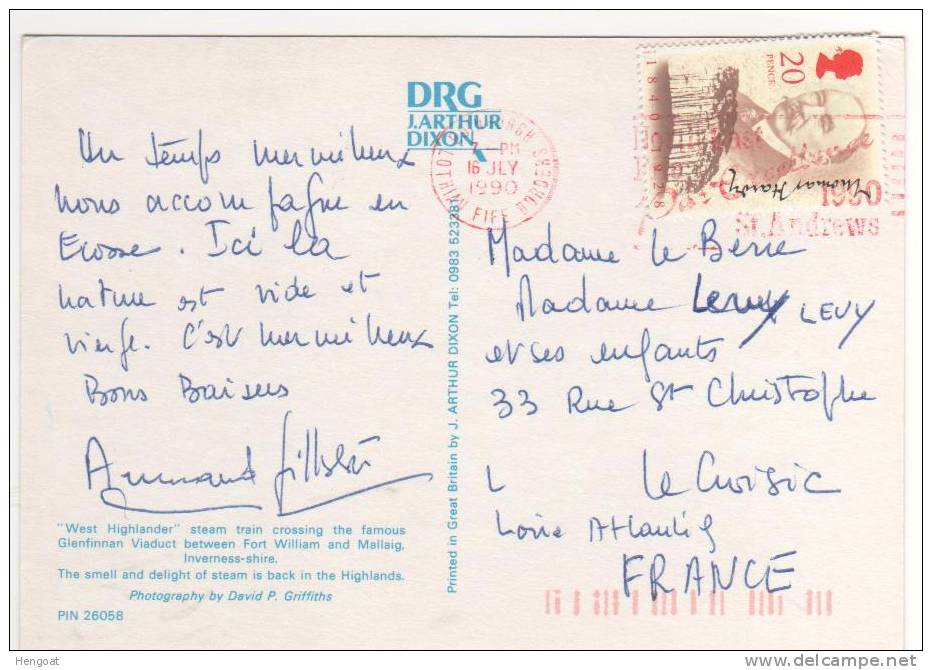 DRG
J.ARTHUR
DIXON
Un temps merveilleux
nous accompagne en
Ecosse. Ici la
nature est vide et
vierge. C'est merveilleux
Bons Baisers
Armand
"West Highlander" steam train crossing the famous
Glenfinnan Viaduct between Fort William and Mallaig,
Inverness-shire.
The smell and delight of steam is back in the Highlands.
Photography by David P. Griffiths
PIN 26058
Printed in Great Britain by J. ARTHUR DIXON Tel: 0983 523381
7 - PM
16 JLY
1990
LOTHIAN FIFE BORDERS
20
PENCE
1840 1928
Thomas Hardy
1990
St. Andrews
Madame Le Berre
Madame Levy LEVY
et ses enfants
33 Rue St Christophe
L Le Croisic
Loire Atlantiq
FRANCE
Hengoat
www.delcampe.net